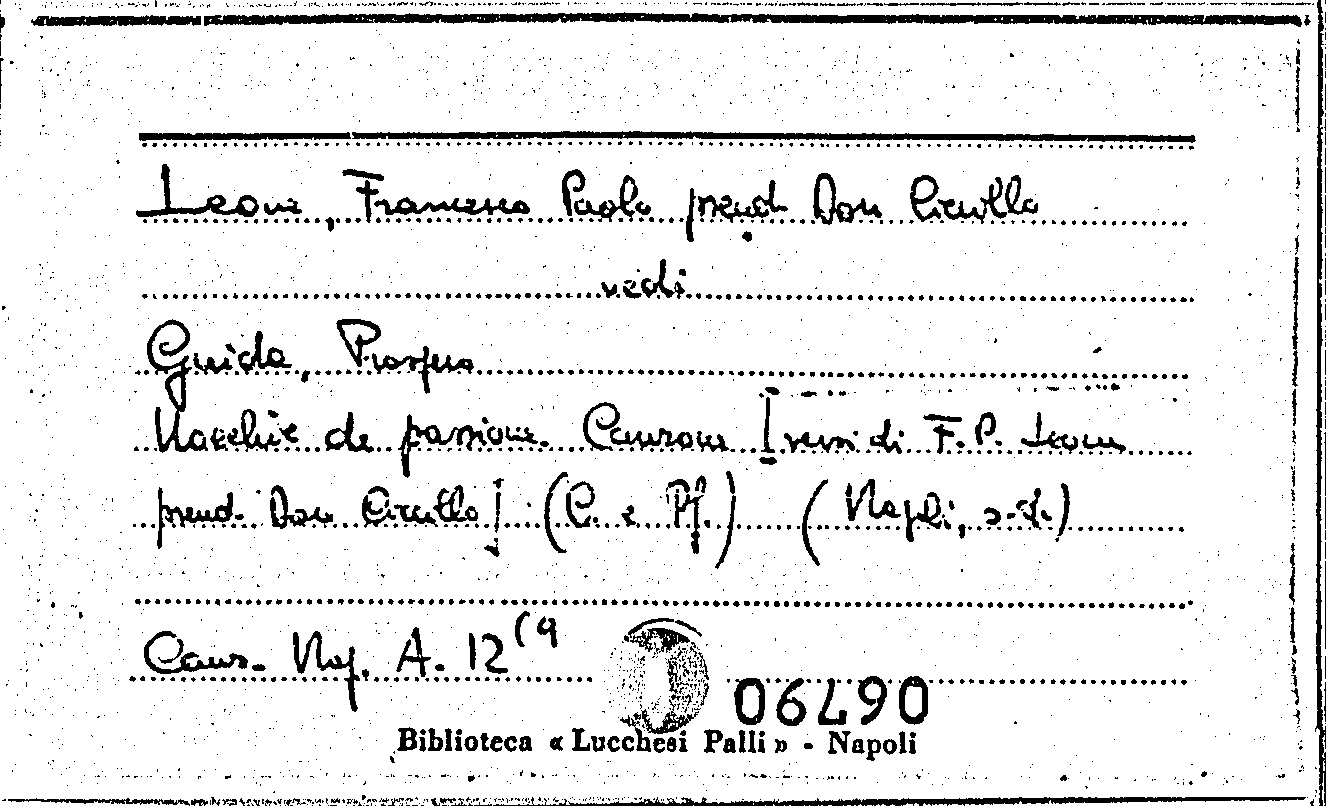 Leone, Francesco Paolo pseud. Don Cirillo
vedi
Guida, Prospero
Nocchie de passione. Canzone [versi di F. P. Leone
pseud. Don Cirillo] (C. e Pf.) (Napoli, s.d.)
Canz. Nap. A. 12 (9
06490
Biblioteca « Lucchesi Palli » - Napoli